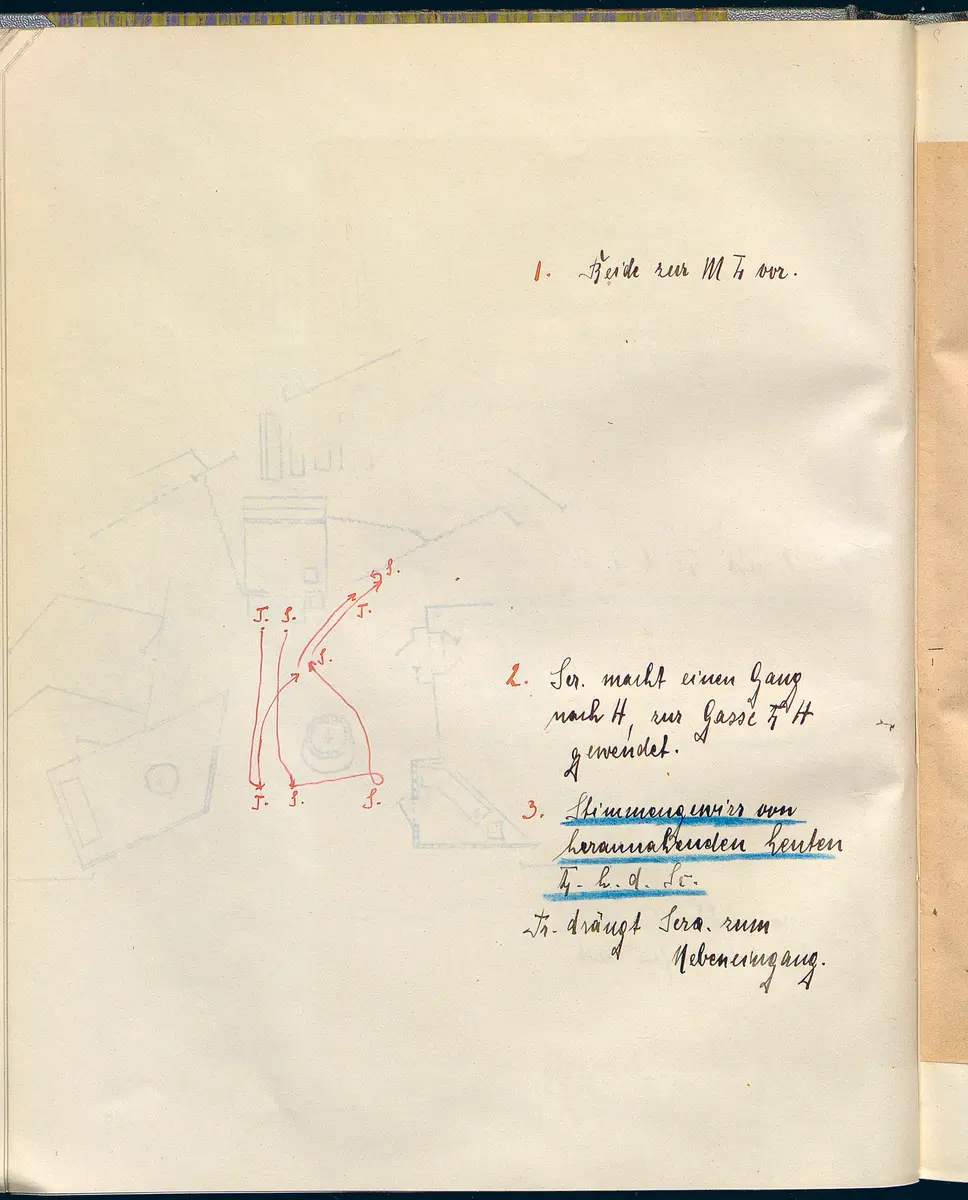 1. Beide zur M vor.
S.
T. S.
T.
S.
2. Ser. macht einen Gang
nach H, zur Gasse H
gewendet.
T. S. S.
3. Stimmengewirr von
herannahenden Leuten
h. d. Sc.
Tr. drängt Sera. zum
Nebeneingang.